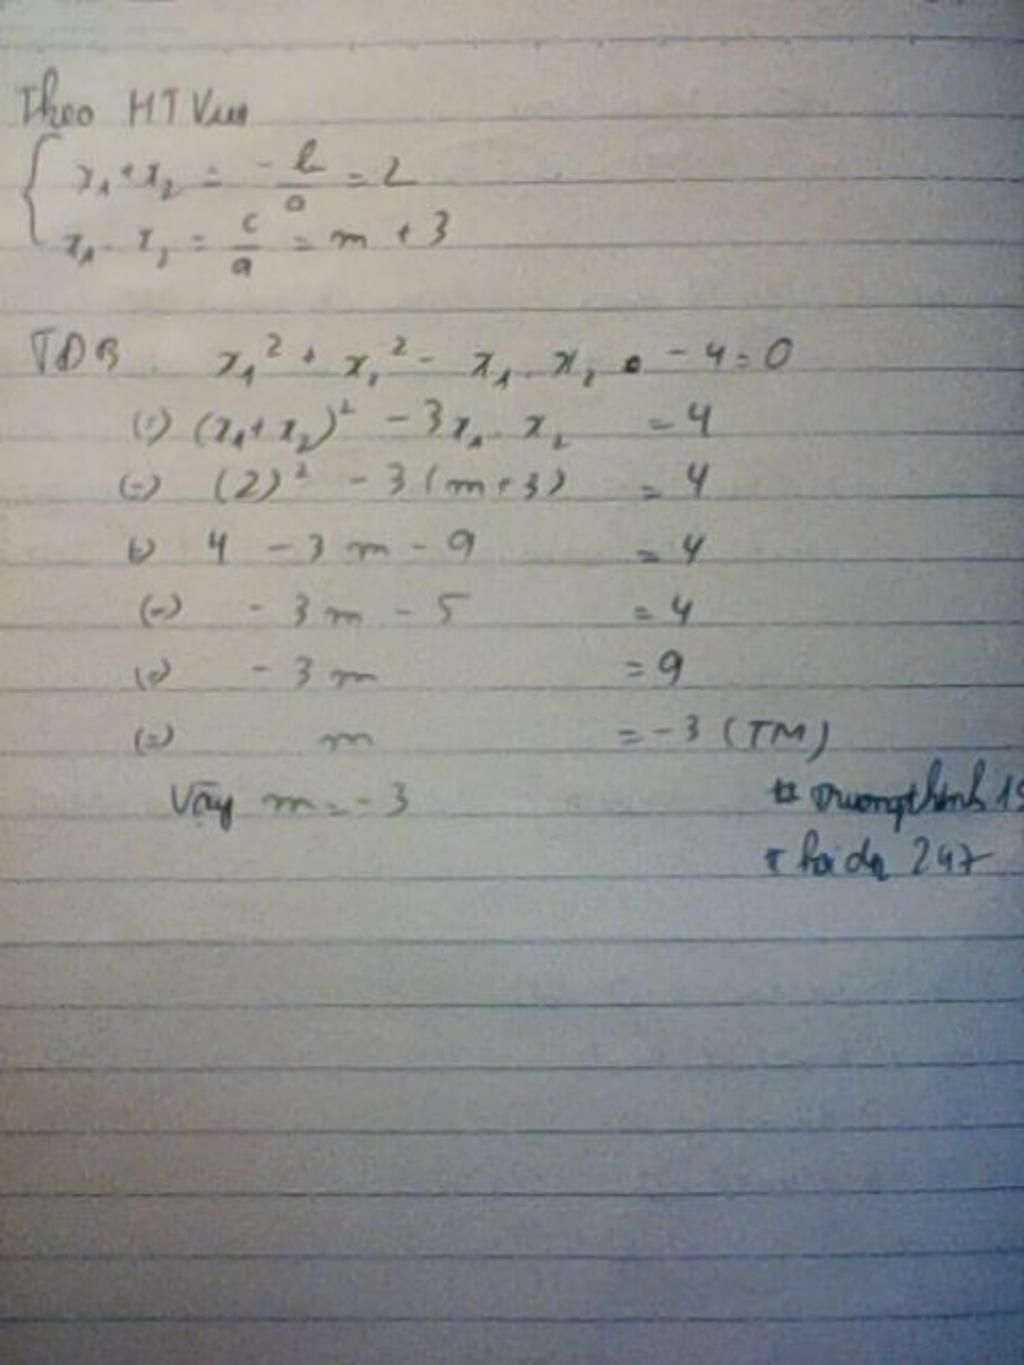 Theo HT Viet
x₁ + x₂ = -b/a = 2
x₁ . x₂ = c/a = m + 3
TDB x₁² + x₂² - x₁ . x₂ - 4 = 0
(=) (x₁ + x₂)² - 3x₁ . x₂ = 4
(=) (2)² - 3(m+3) = 4
(=) 4 - 3m - 9 = 4
(=) - 3m - 5 = 4
(=) - 3m = 9
(=) m = -3 (TM)
Vậy m = -3
truongthinh 19
hoidap 247